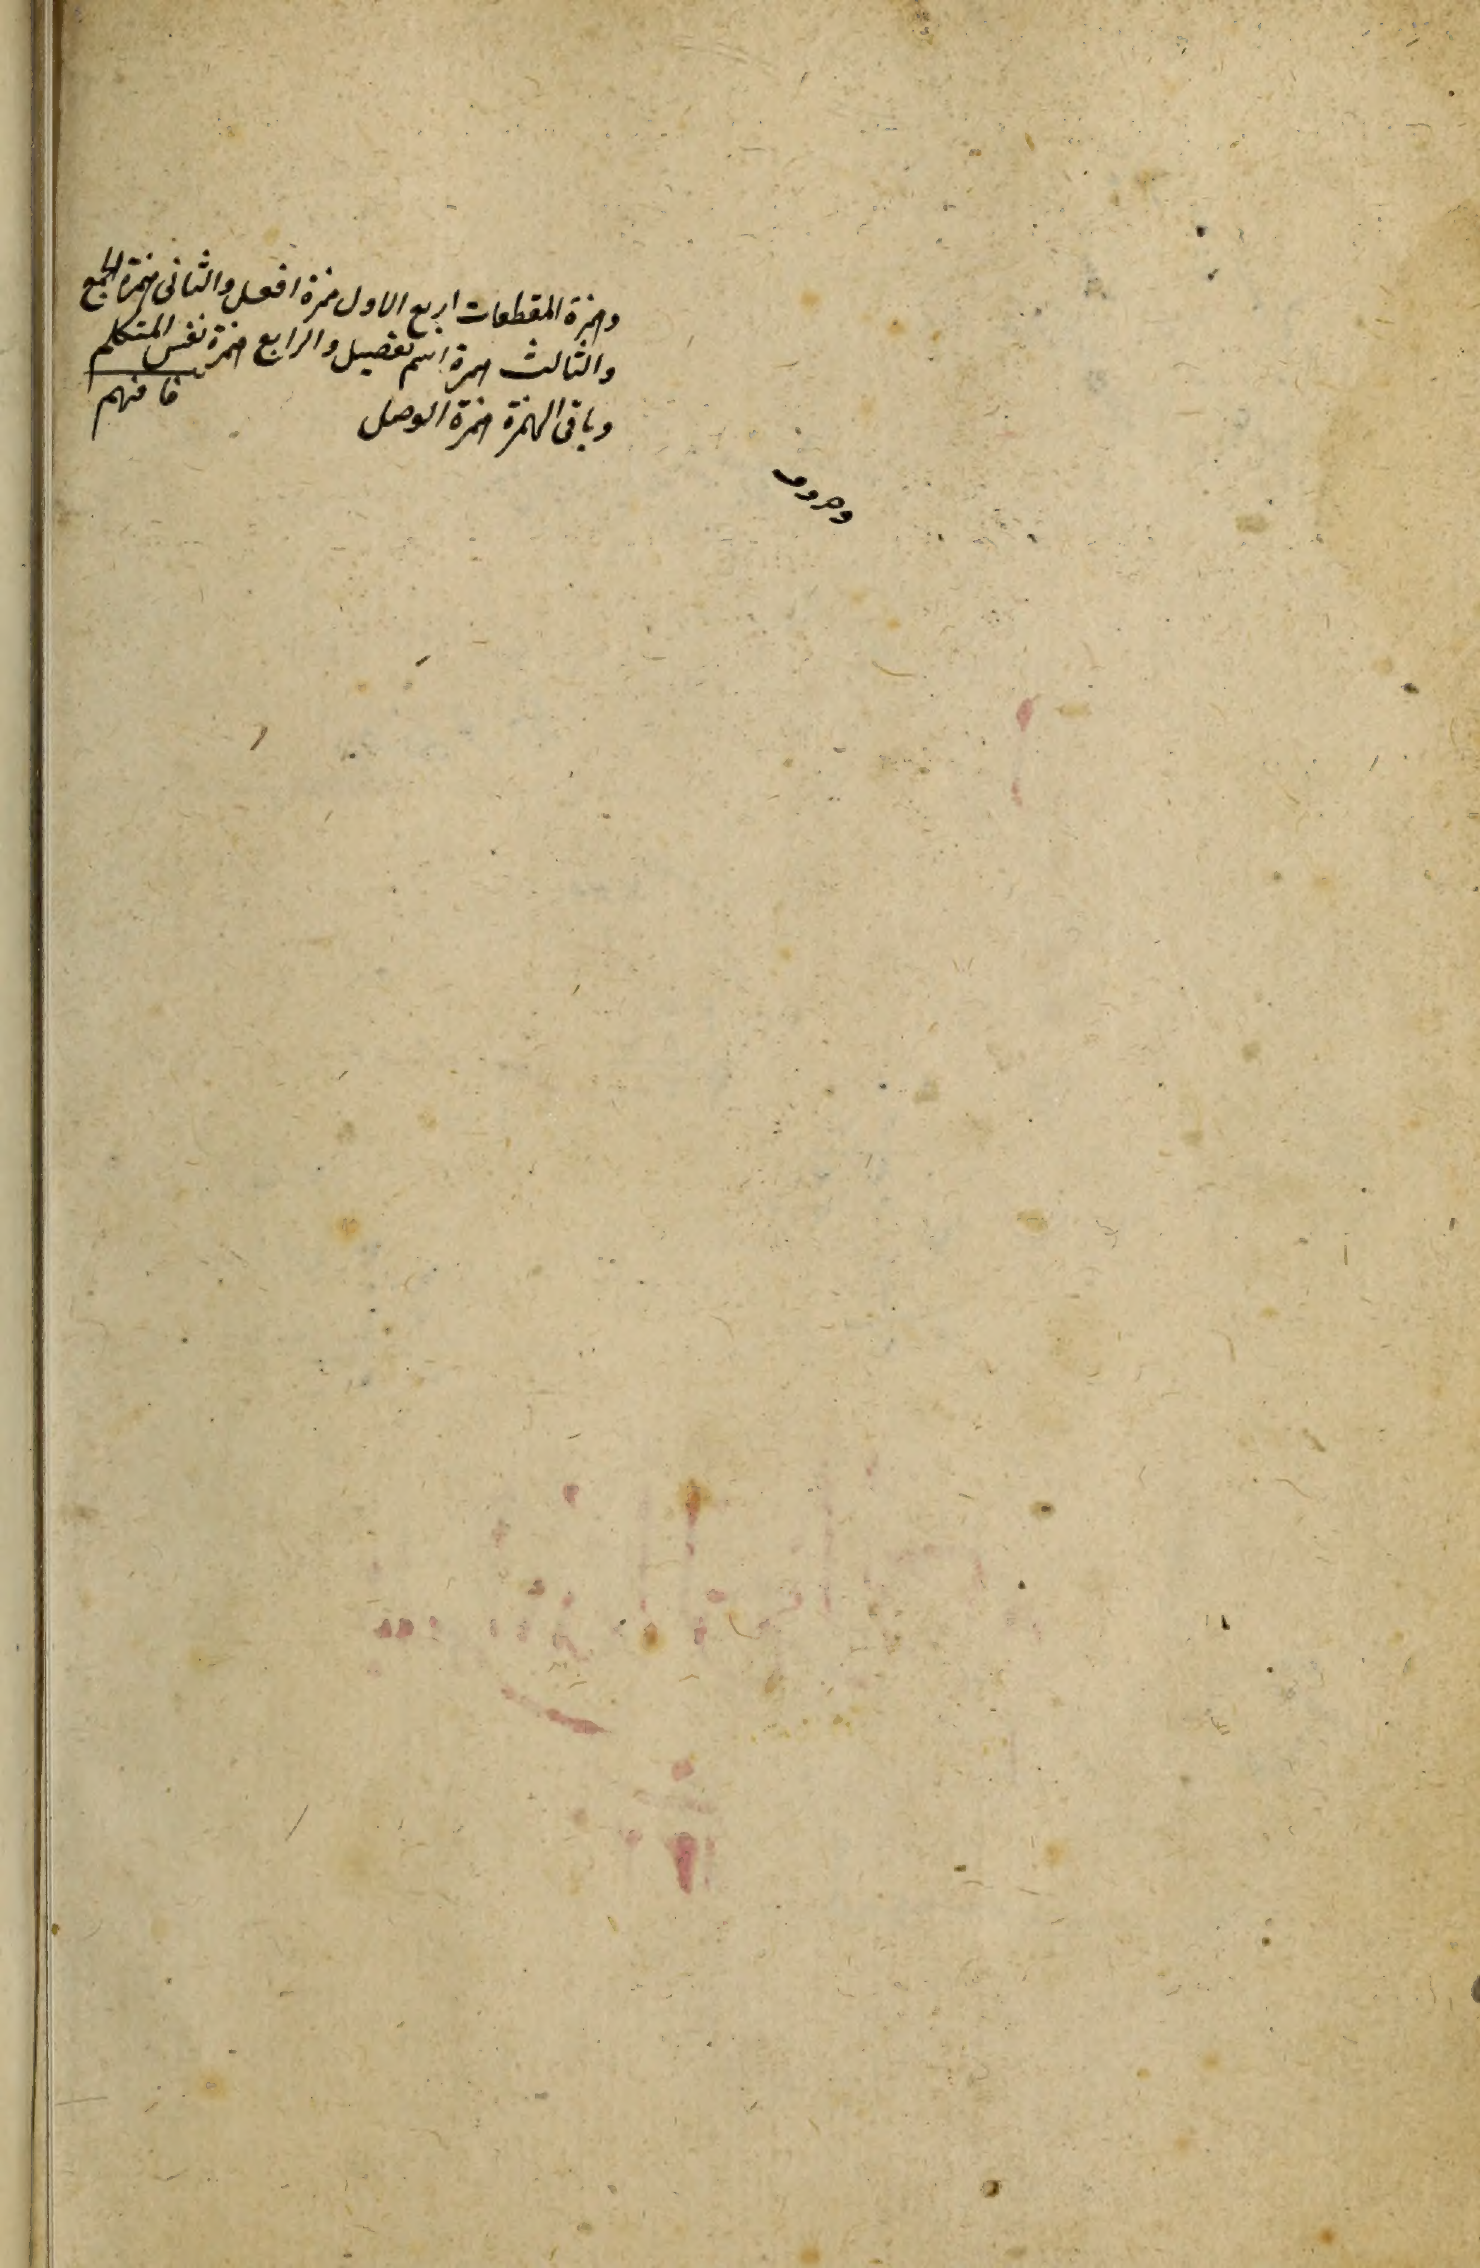 وهمزة المقطعات اربع الاول همزة افعل والثانى همزة الجمع
والثالث همزة اسم تفضيل والرابع همزة نفس المتكلم
وباقى الهمزة همزة الوصل فافهم
وحروف